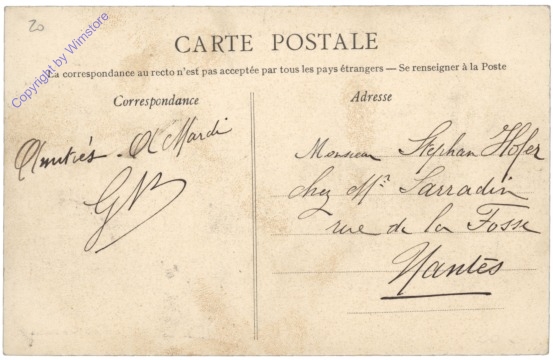 20
Copyright by Wimstore
CARTE POSTALE
La correspondance au recto n'est pas acceptée par tous les pays étrangers — Se renseigner à la Poste
Correspondance
Amitiés. A Mardi
GB
Adresse
Monsieur Stephan Hofer
chez Mr. Sarradin
rue de la Fosse
Nantes